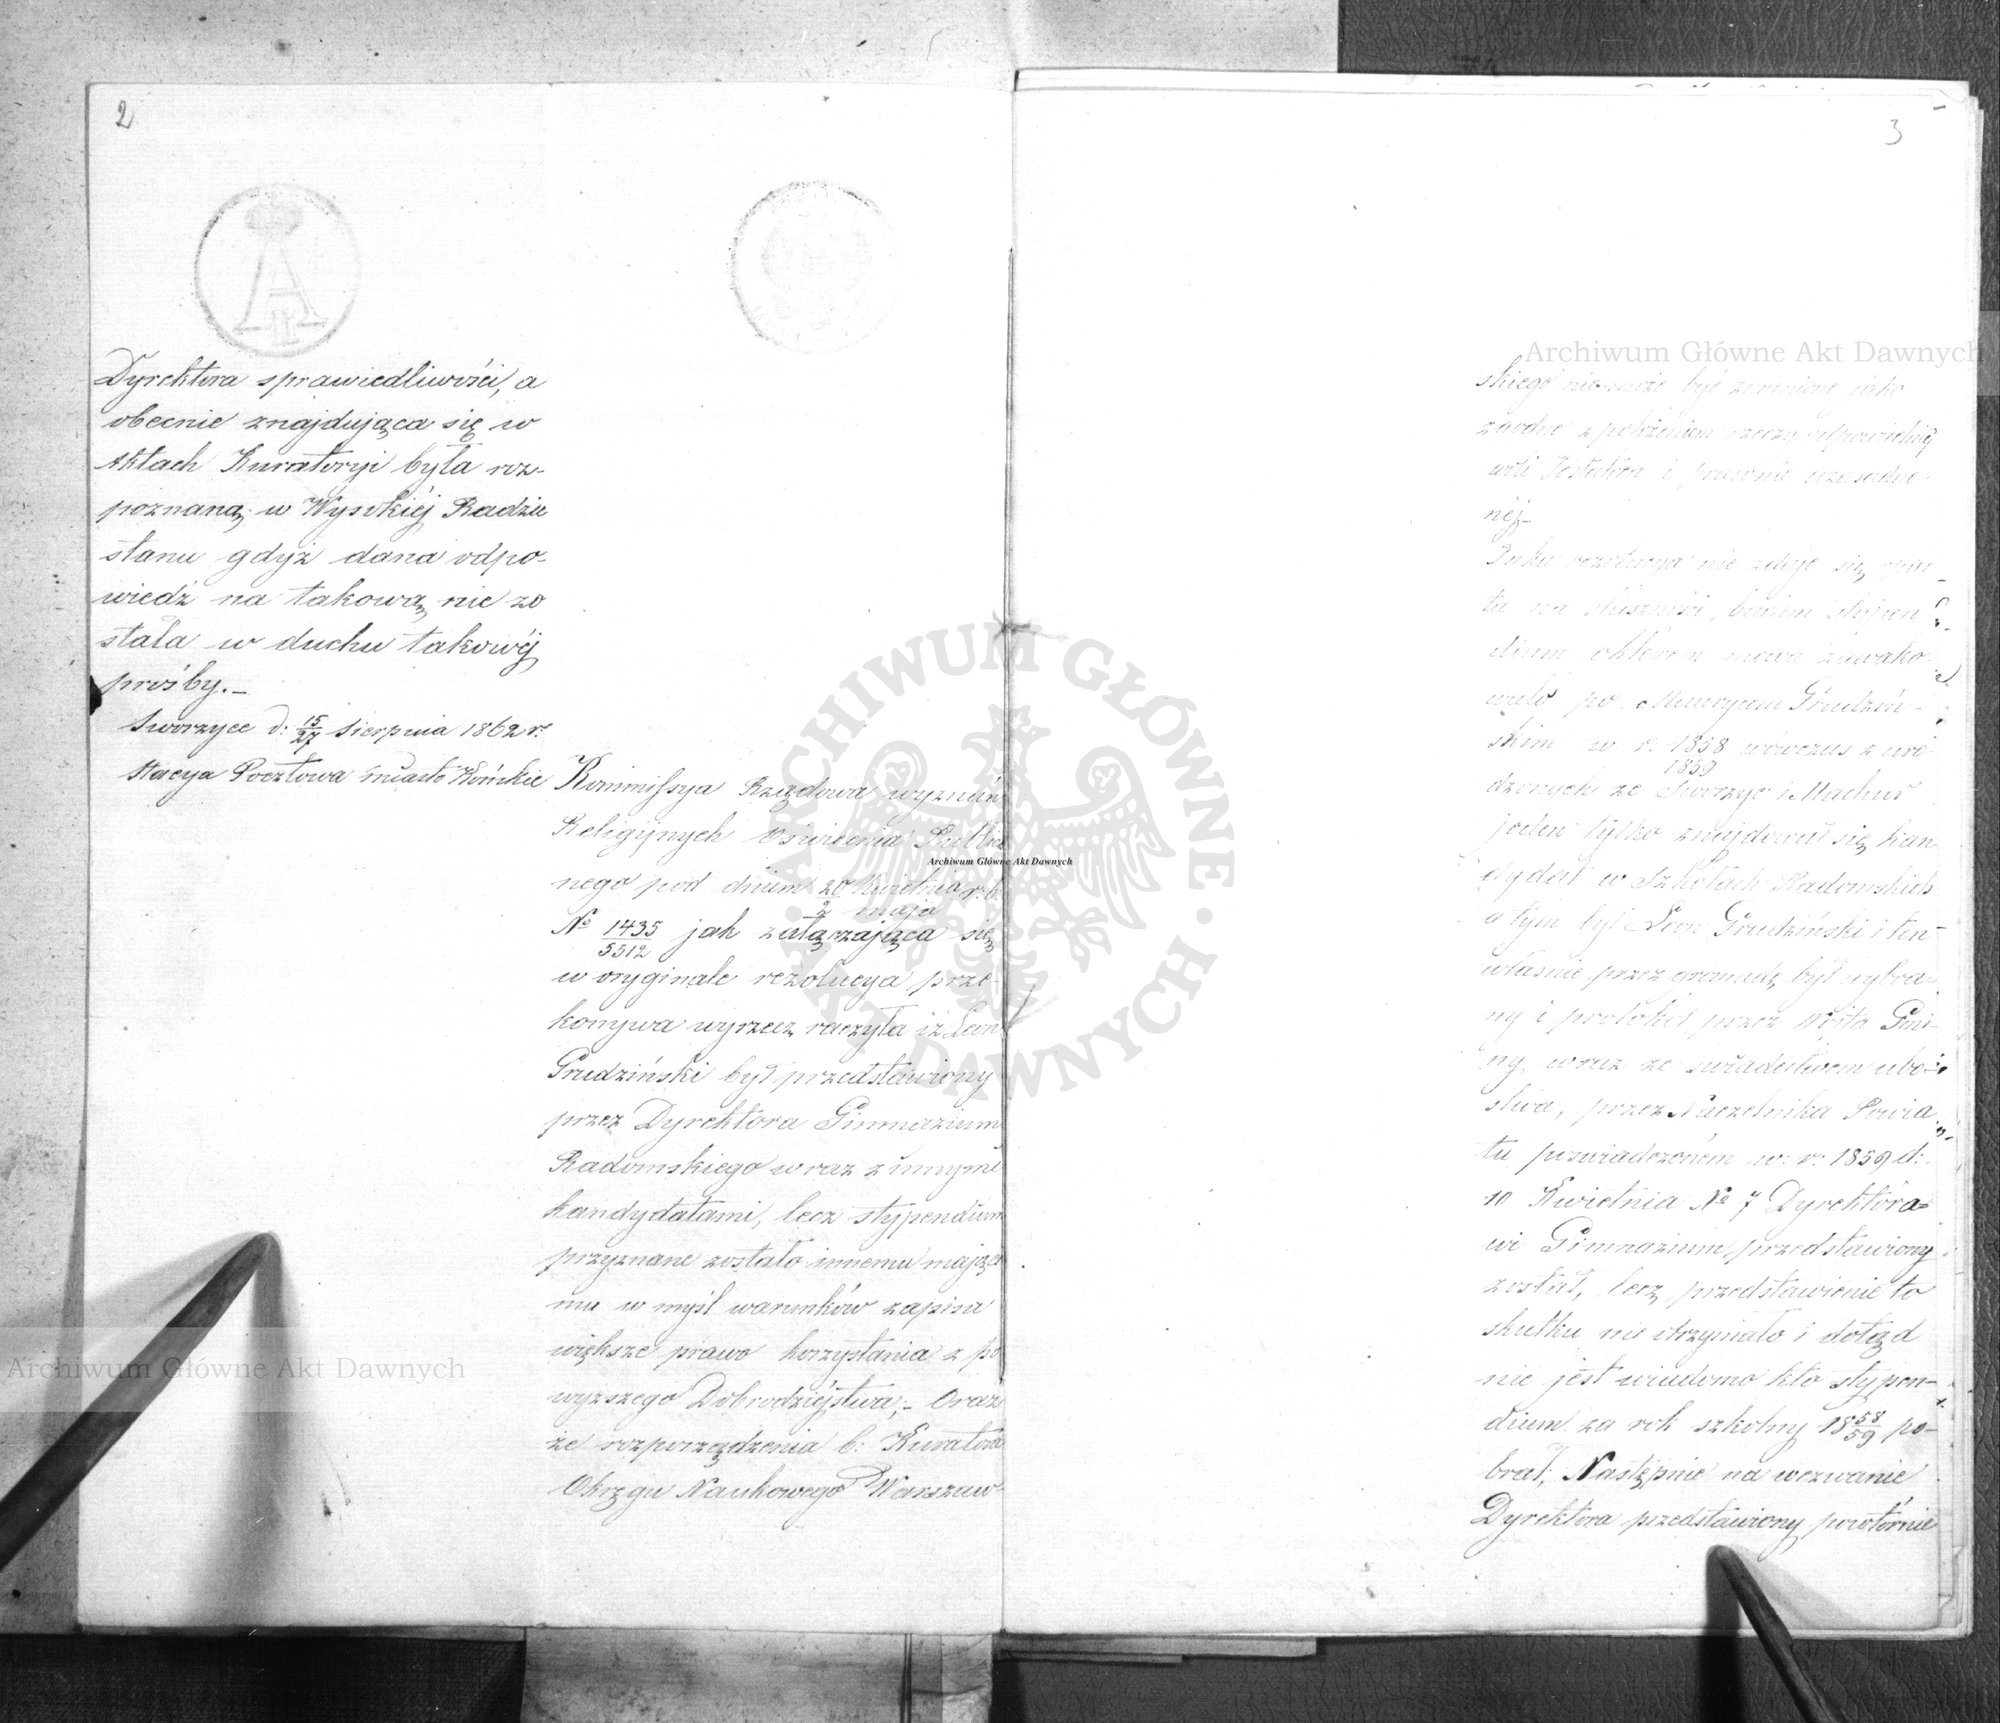 2
Dyrektora sprawiedliwości, a
obecnie znajdująca się w
Aktach Kuratoryi była roz-
poznaną w Wysokiéj Radzie
stanu gdyż dana odpo-
wiedź na takową nie zo
stała w duchu takowéj
prośby.-
Sworzyce d: 15/27 Sierpnia 1862 r.
Stacya Pocztowa miasto Końskie
Kommissya Rządowa wyznań
Religijnych Oświecenia Public
nego pod dniem 20 Kwietnia/2 maja r. b.
No 1435/5512 jak załączająca się
w oryginale rezolucya prze-
konywa wyrzecz raczyła iż Leon
Grudziński był przedstawiony
przez Dyrektora Gimnazium
Radomskiego wraz z innymi
kandydatami, lecz stypendium
przyznane zostało innemu mające
mu w myśl warunków zapisu
większe prawo korzystania z po
wyższego Dobrodziéjstwa;- Oraz
że rozporządzenia b: Kuratora
Okręgu Naukowego Warszaw-
3
skiego nie może być zmienione jako
zgodne z położeniem rzeczy odpowiednią
woli Testatora i prawnie uzasadnio-
néj-
rezolucya nie zdaje się opar-
ta na słuszności, bowiem stypen
dium o którem mowa zawako-
wało po Maurycem Grudziń-
skim w r. 1858/1859 wówczas z uro
dzonych ze Sworzyc i Machor
jeden tylko znajdował się kan
dydat w Szkołach Radomskich
a tym był Leon Grudziński i ten
właśnie przez gromadę był wybra-
ny i protokół przez Wójta Gmi-
ny wraz ze świadectwem ubó-
stwa, przez Naczelnika Powia
tu poświadczoném w: r: 1859 d:
10 Kwietnia No 7 Dyrektoro-
wi Gimnazium przedstawiony
został, lecz przedstawienie to
skutku nie otrzymało i dotąd
nie jest wiadomo kto stypen-
dium za rok szkolny 1858/59 po-
brał; Następnie na wezwanie
Dyrektora przedstawiony powtórnie
Archiwum Główne Akt Dawnych
Archiwum Główne Akt Dawnych
Archiwum Główne Akt Dawnych
ARCHIWUM GŁÓWNE AKT DAWNYCH